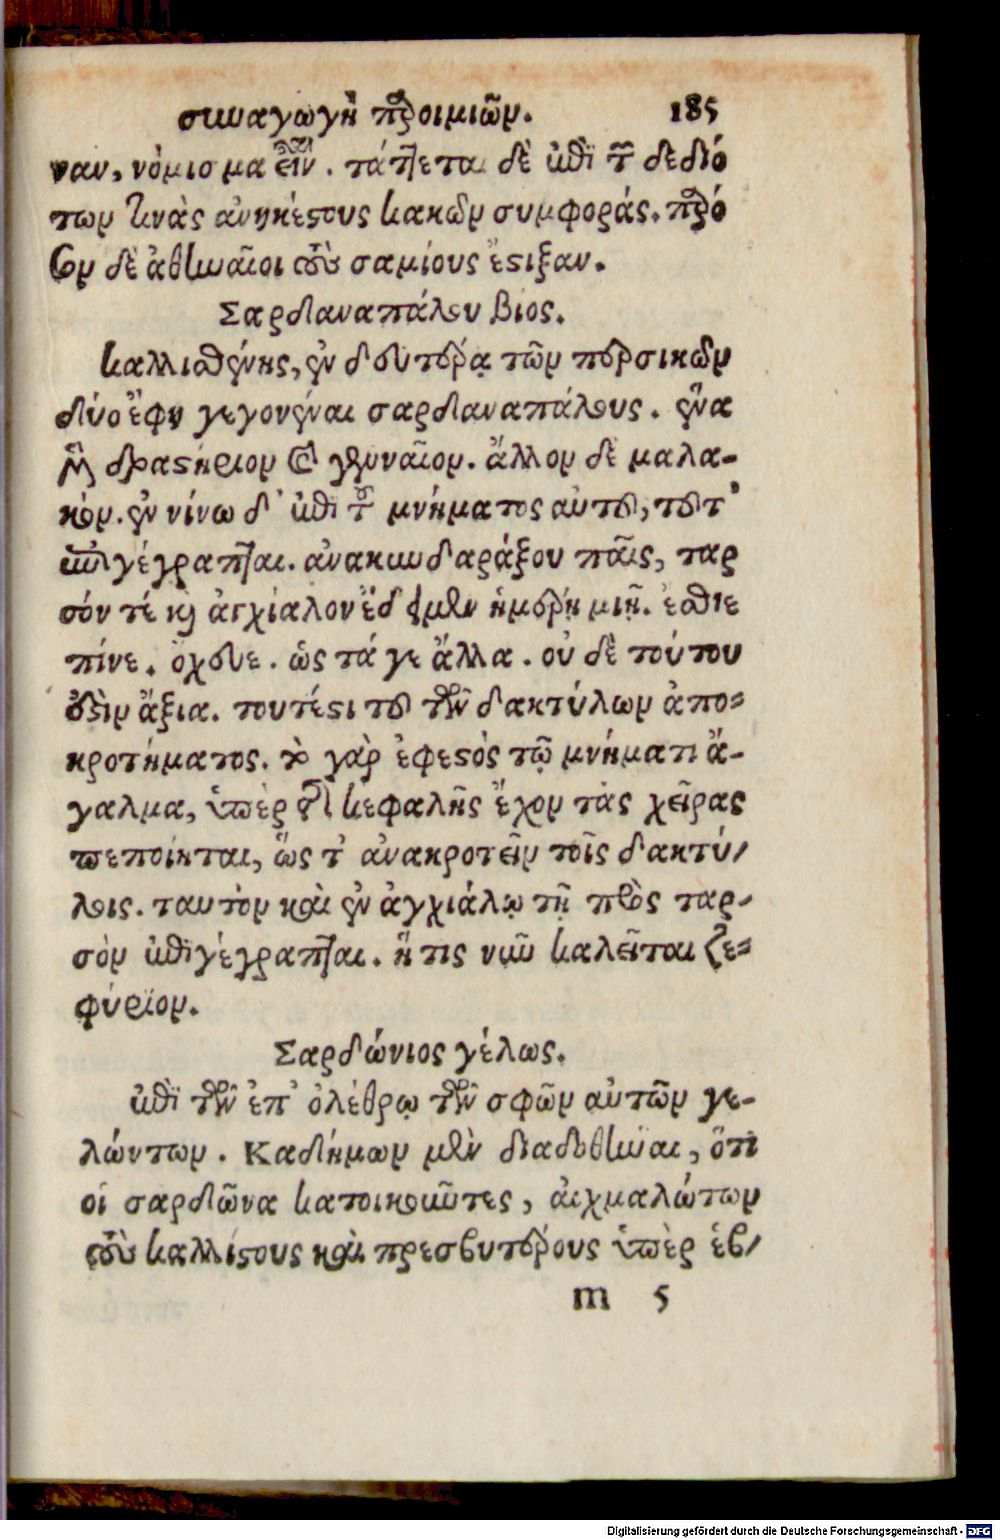 συναγωγὴ παροιμιῶν. 185
ναν, νόμισμα ἐστίν. τάττεται δὲ ἐπὶ τῶν δεδιό
των τινὰς ἀνηκέστους κακῶν συμφοράς. παρό
σον δὲ ἀθηναῖοι τοὺς σαμίους ἔστιξαν.
Σαρδαναπάλου βίος.
καλλισθένης, ἐν δευτέρᾳ τῶν περσικῶν
δύο ἔφη γεγονέναι σαρδαναπάλους. ἕνα
μὲν δραστήριον καὶ γενναῖον. ἄλλον δὲ μαλα-
κόν. ἐν νίνω δ' ἐπὶ τοῦ μνήματος αὐτοῦ, τοῦτ'
ἐπιγέγραπται. ἀνακυνδαράξου παῖς, ταρ
σόν τέ καὶ ἀγχίαλον ἔδειμεν ἡμέρῃ μιῇ. ἔσθιε
πίνε. ὄχευε. ὡς τά γε ἄλλα. οὐ δὲ τούτου
ὅδειν ἄξια. τουτέστι τοῦ τῶν δακτύλων ἀπο-
κροτήματος. τὸ γὰρ ἐφεστὸς τῷ μνήματι ἄ-
γαλμα, ὑπὲρ τῆς κεφαλῆς ἔχον τὰς χεῖρας
πεποίηται, ὥς τ' ἀνακροτεῖν τοῖς δακτύ-
λοις. ταυτὸν καὶ ἐν ἀγχιάλῳ τῇ πρὸς ταρ-
σὸν ἐπιγέγραπται. ἥ τις νῦν καλεῖται ζε-
φύριον.
Σαρδώνιος γέλως.
ἐπὶ τῶν ἐπ' ὀλέθρῳ τῶν σφῶν αὐτῶν γε-
λώντων. Καδήμων μὲν διαδοθῆναι, ὅτι
οἱ σαρδῶνα κατοικοῦντες, αἰχμαλώτων
τοὺς καλλίστους καὶ πρεσβυτέρους ὑπὲρ ἑβ-
m 5
Digitalisierung gefördert durch die Deutsche Forschungsgemeinschaft - DFG